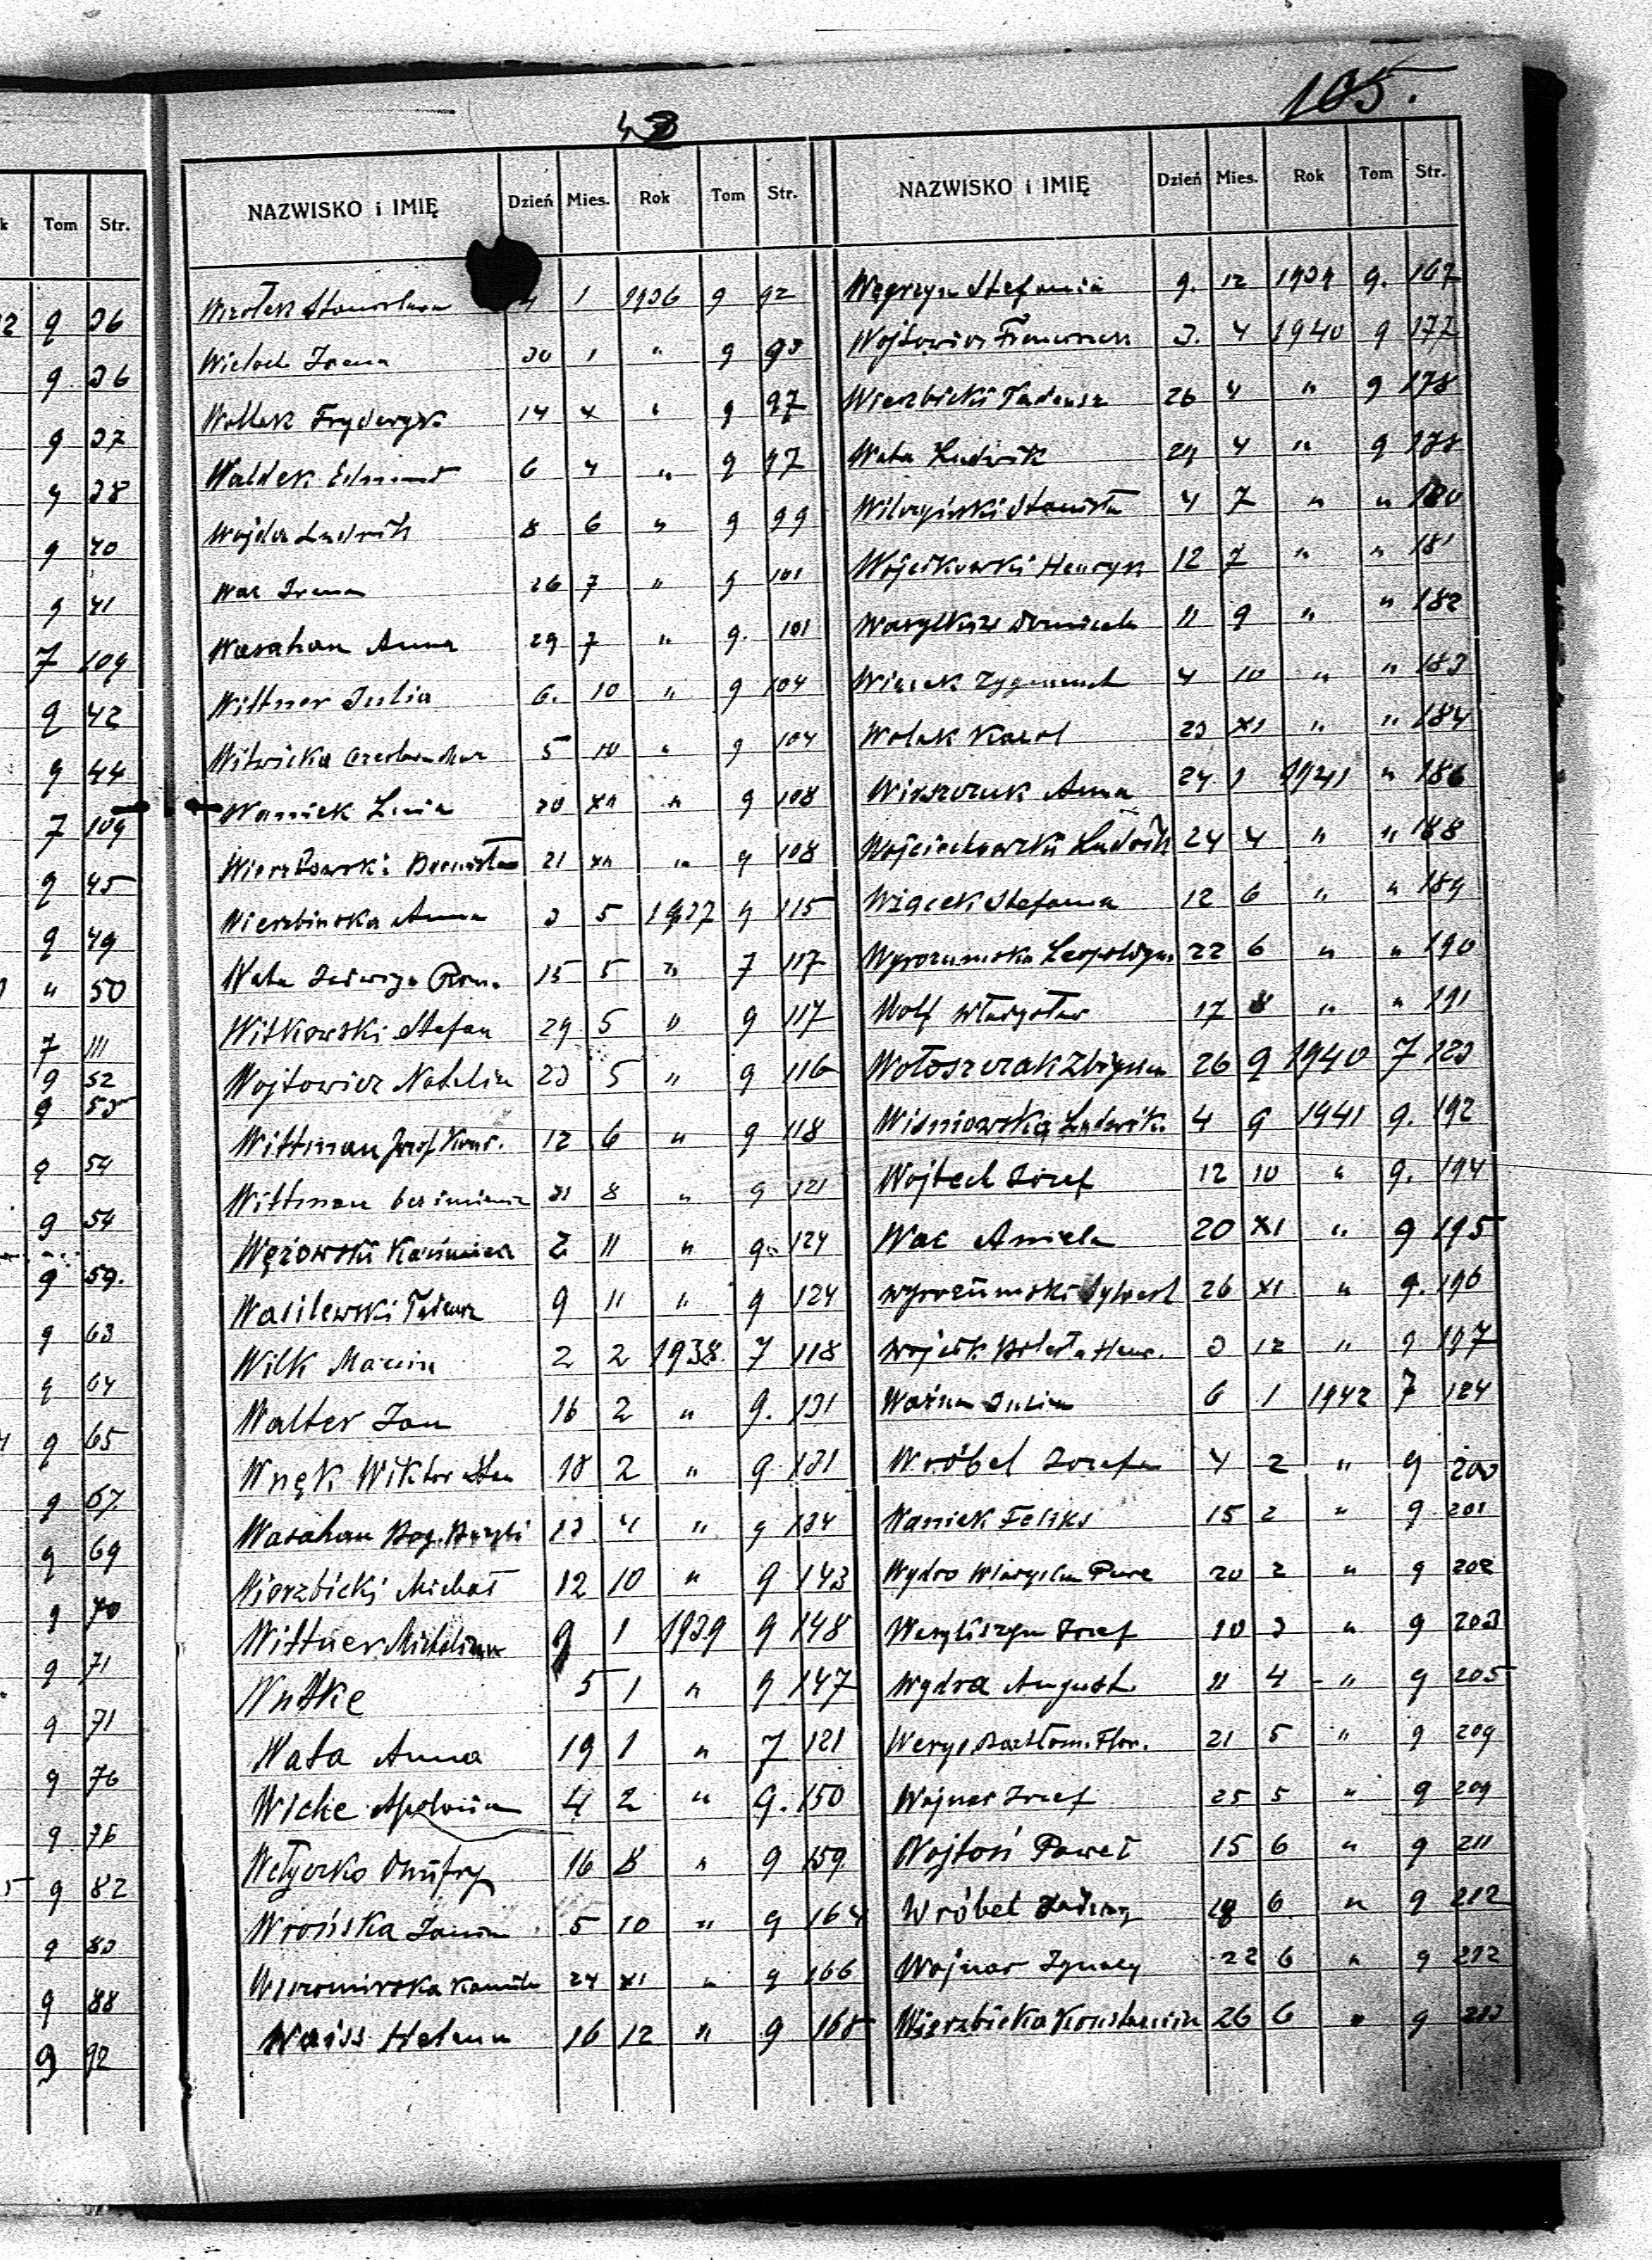 105.
43
NAZWISKO i IMIĘ Dzień Mies. Rok Tom Str.
Stanisława 4 1 1936 9 92
Wieloch Irena 30 1 " 9 93
Wallek Fryderyk 14 4 " 9 97
Waldek Edmund 6 4 " 9 97
Wojda Ludwik 8 6 " 9 99
Wac Irena 26 7 " 9 101
Wasahan Anna 29 7 " 9. 101
Wittner Julia 6. 10 " 9 104
Witwicka 5 10 " 9 104
Waniek 20 XII " 9 108
Bronisław 21 XII " 9 108
Wierzbińska Anna 3 5 1937 9 115
Wata Jadwiga 15 5 " 7 117
Witkowski Stefan 29 5 " 9 117
Wojtowicz Natalia 23 5 " 9 116
Wittman Józef 12 6 " 9 118
Wittman bez imienia 31 8 " 9 121
Wężowski Kazimierz 2 11 " 9 124
Wasilewski Tadeusz 9 11 " 9 124
Wilk 2 2 1938 7 118
Walter Jan 16 2 " 9. 131
Wnęk Wiktor 18 2 " 9 131
Wasahan 13 4 " 9 134
Wierzbicki Michał 12 10 " 9 143
Wittner Michalina 9 1 1939 9 148
5 1 " 9 147
Wata Anna 19 1 " 7 121
Wicke Apolonia 4 2 " 9. 150
Wełyczko Onufry 16 8 " 9 159
Wrońska Janina 5 10 " 9 164
24 XI " 9 166
Waiss Helena 16 12 " 9 168
NAZWISKO i IMIĘ Dzień Mies. Rok Tom Str.
Węgrzyn Stefania 9. 12 1939 9. 167
Wojtowicz 3. 4 1940 9 177
Wierzbicki Tadeusz 26 4 " 9 178
Wata Ludwik 29 4 " 9 178
Wilczyński 4 7 " " 180
Wójcikowski Henryk 12 7 " " 181
11 9 " " 182
Zygmunt 4 10 " " 183
Wolak Karol 23 XI " " 184
Anna 24 1 1941 " 186
Wojciechowski Ludwik 24 4 " " 188
Stefania 12 6 " " 189
Wyrozumska 22 6 " " 190
Wolf Władysław 17 8 " " 191
Wołoszczak Zbigniew 26 9 1940 7 123
Wiśniowska 4 9 1941 9. 192
Wojtech Józef 12 10 " 9. 194
Wac Aniela 20 XI " 9 195
Wyrozumski Sylwest 26 XI " 9. 196
3 12 " 9 197
Ważna Julia 6 1 1942 7 124
Wróbel Józefa 4 2 " 9 200
Waniek Feliks 15 2 " 9 201
Wydro 20 2 " 9 202
Wasyliszyn Józef 10 3 " 9 203
Wydra August 11 4 " 9 205
21 5 " 9 209
Wojnar Józef 25 5 " 9 209
Wojtoń Paweł 15 6 " 9 211
Wróbel 18 6 " 9 212
Wojnar Ignacy 22 6 " 9 212
Wierzbicka 26 6 " 9 213
Tom Str.
9 36
9 36
9 37
9 38
9 40
9 41
7 109
9 42
9 44
7 109
9 45
9 49
" 50
7 111
9 52
9 53
9 54
9 54
9 59.
9 63
9 64
9 65
9 67
9 69
9 70
9 71
9 71
9 76
9 76
9 82
9 83
9 88
9 92